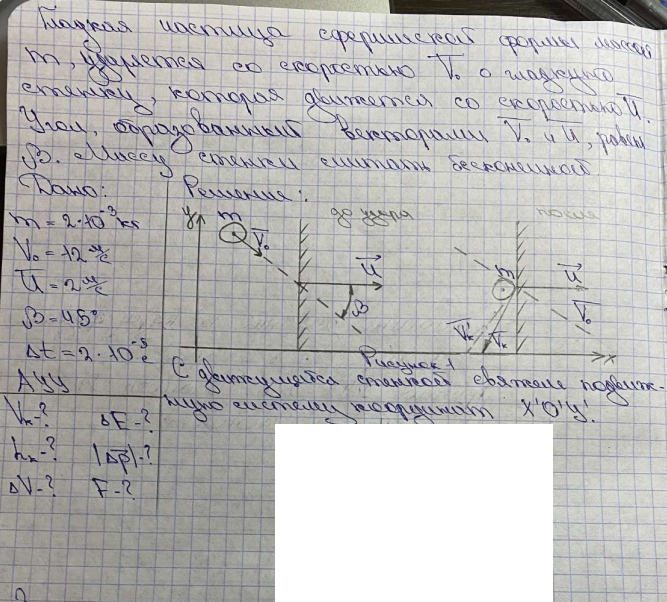 Гладкая частица сферической формы массой
m, ударяется со скоростью V̅₀ о гладкую
стенку, которая движется со скоростью U̅.
Угол, образованный векторами V̅₀ и U̅, равен
β. Массу стенки считать бесконечной
Дано:
m = 2·10⁻³ кг
V₀ = 12 м/с
U̅ = 2 м/с
β = 45°
Δt = 2·10⁻⁵ с
АУУ
Vₙ-? ΔE-?
hₙ-? |Δp̅|-?
ΔV-? F-?
Решение:
y m V̅₀ до удара U̅ β
после m U̅ V̅₀ V̅ₖ' V̅ₖ x
Рисунок 1
С движущейся стенкой свяжем подвиж-
ную систему координат X'O'Y'.